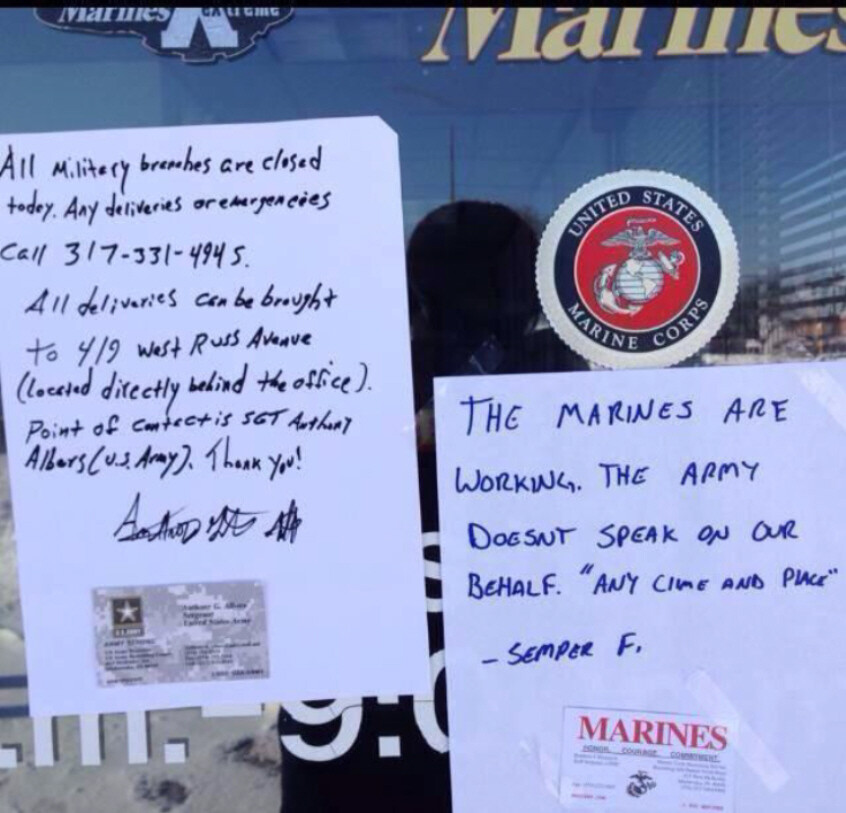 Marines
extreme
Marines
All Military branches are closed
today. Any deliveries or emergencies
Call 317-331-4945.
All deliveries can be brought
to 419 West Russ Avenue
(located directly behind the office).
Point of contact is SGT Anthony
Albers (U.S. Army). Thank you!
UNITED STATES
MARINE CORPS
THE MARINES ARE
WORKING. THE ARMY
DOESNT SPEAK ON OUR
BEHALF. "ANY CIME AND PLACE"
- SEMPER F.
Sergeant
United States Army
MARINES
HONOR. COURAGE. COMMITMENT.